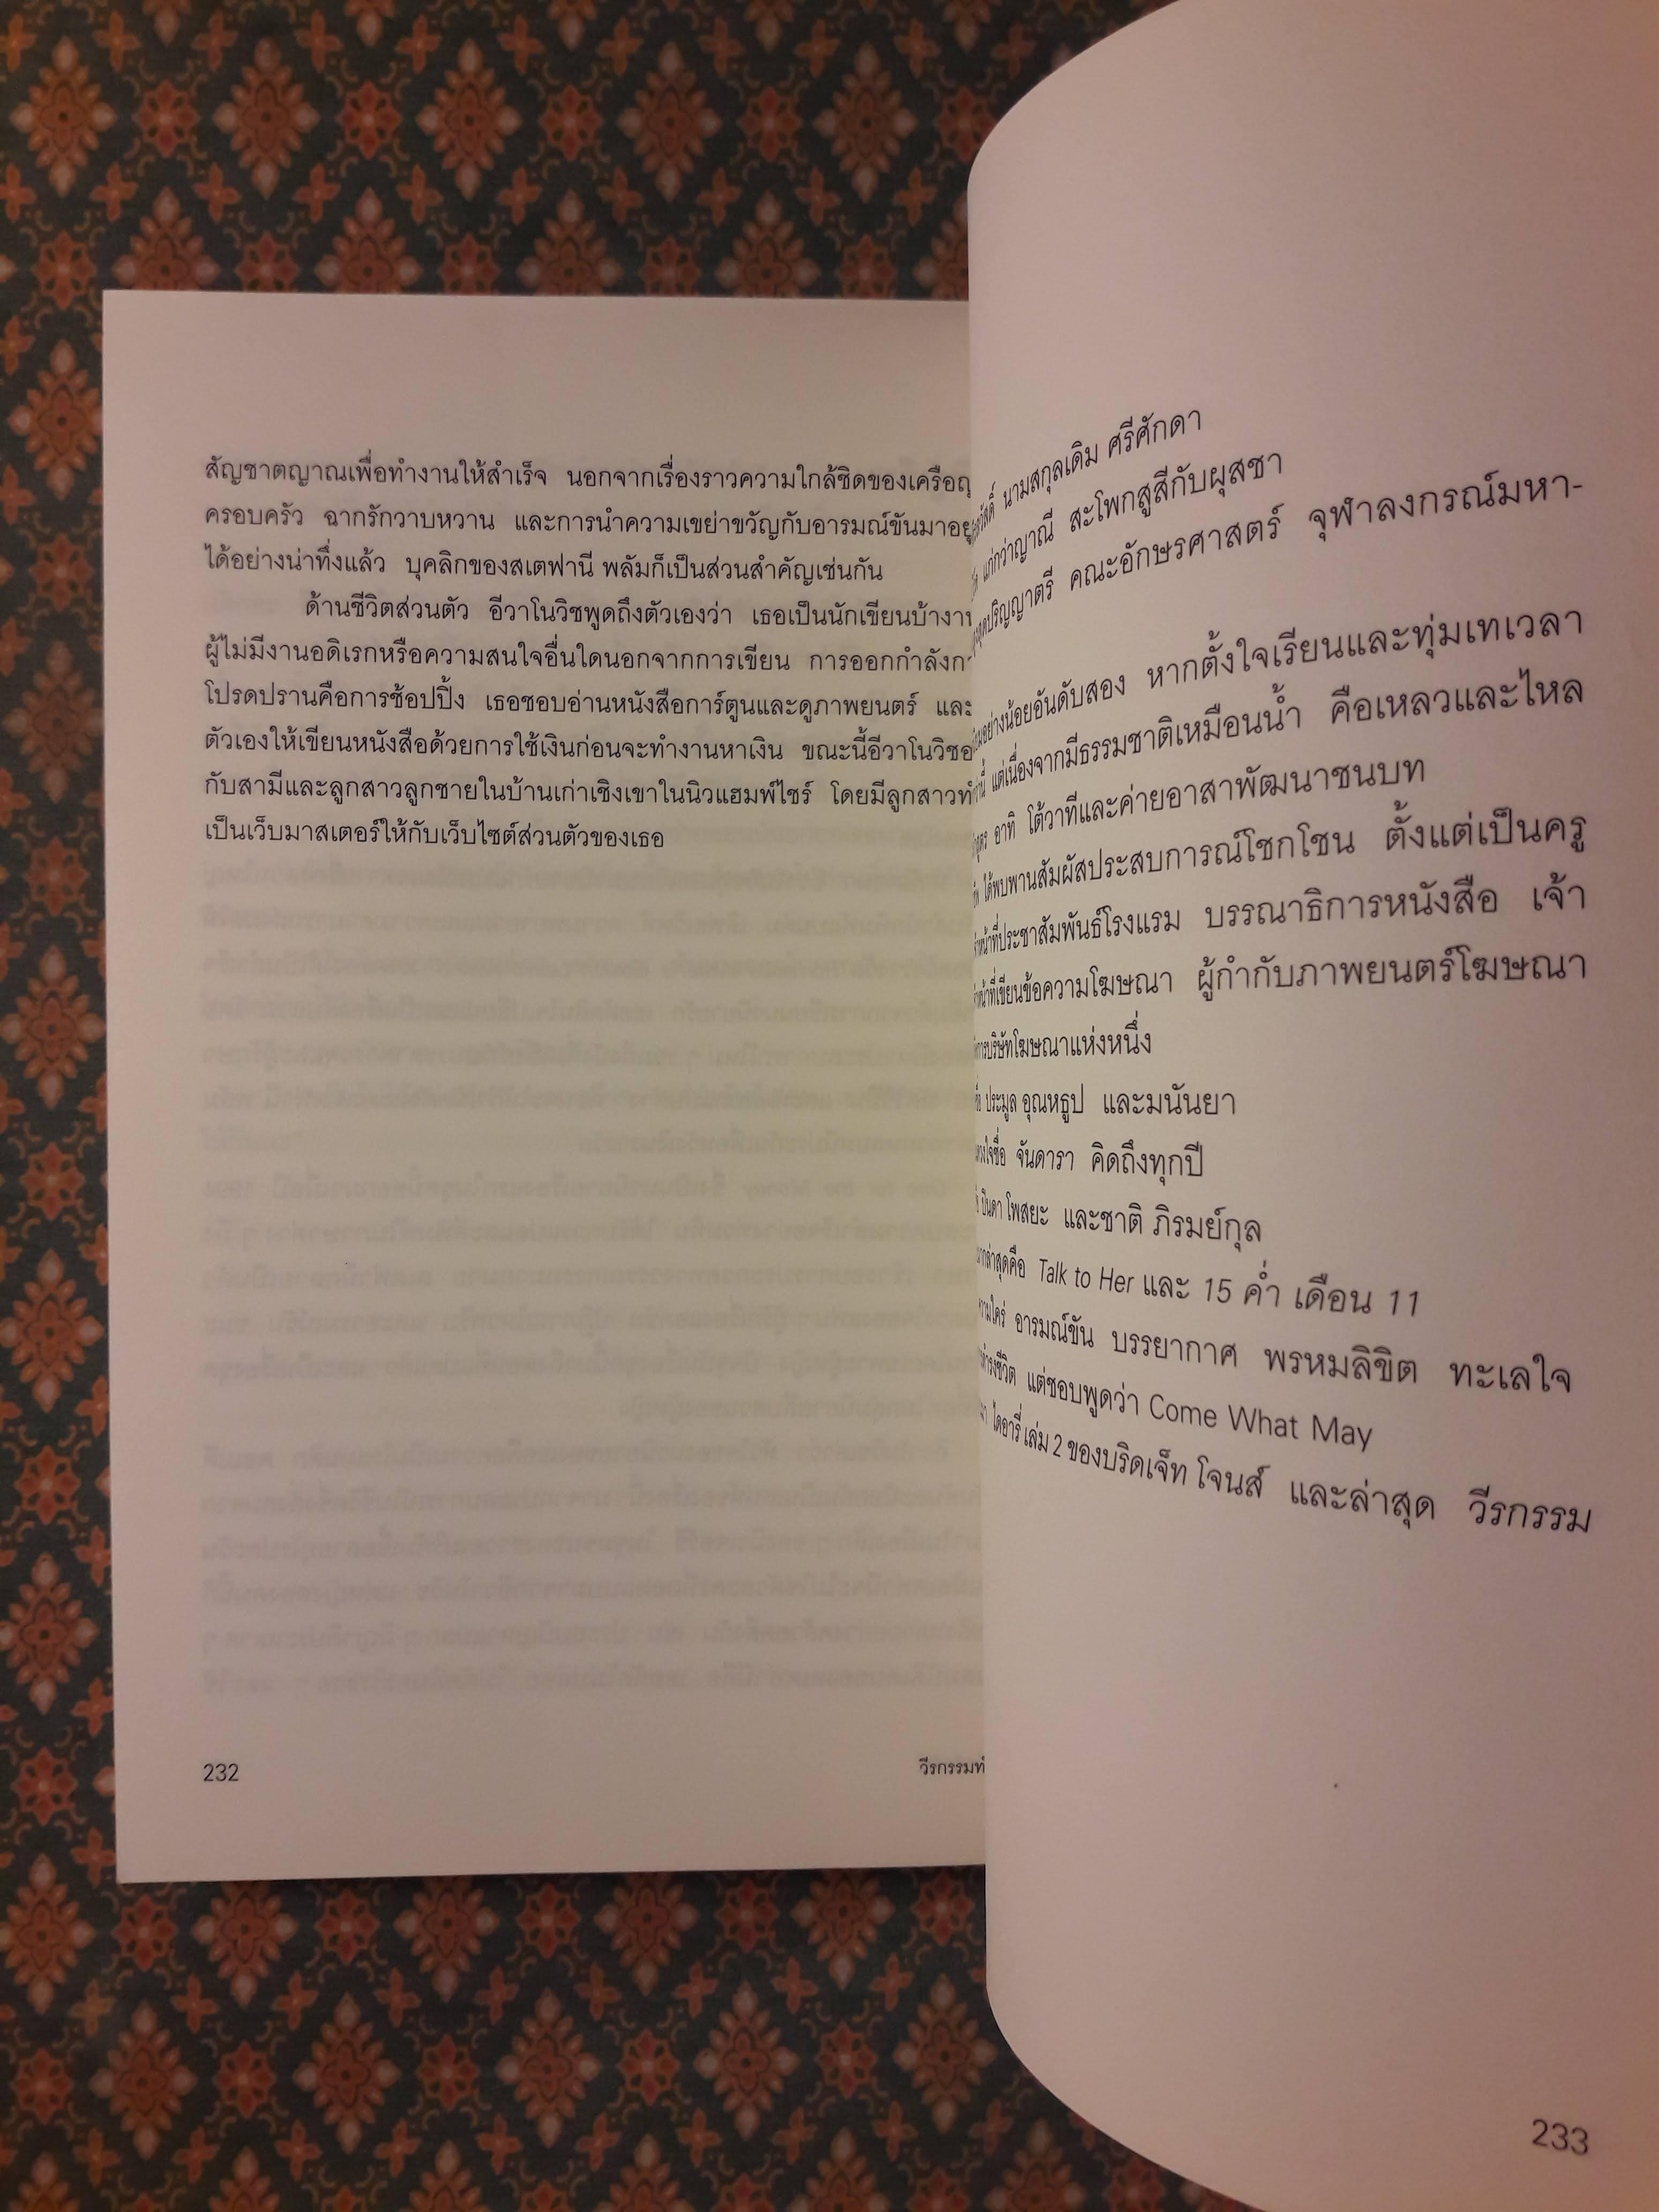 สัญชาตญาณเพื่อทำงานให้สำเร็จ นอกจากเรื่องราวความใกล้ชิดของเครือญ
ครอบครัว ฉากรักวาบหวาน และการนำความเขย่าขวัญกับอารมณ์ขันมาอยู่
ได้อย่างน่าทึ่งแล้ว บุคลิกของสเตฟานี พลัมก็เป็นส่วนสำคัญเช่นกัน
ด้านชีวิตส่วนตัว อีวาโนวิชพูดถึงตัวเองว่า เธอเป็นนักเขียนบ้างาน
ผู้ไม่มีงานอดิเรกหรือความสนใจอื่นใดนอกจากการเขียน การออกกำลังกา
โปรดปรานคือการช้อปปิ้ง เธอชอบอ่านหนังสือการ์ตูนและดูภาพยนตร์ และ
ตัวเองให้เขียนหนังสือด้วยการใช้เงินก่อนจะทำงานหาเงิน ขณะนี้อีวาโนวิชอ
กับสามีและลูกสาวลูกชายในบ้านเก่าเชิงเขาในนิวแฮมพ์ไชร์ โดยมีลูกสาวทำ
เป็นเว็บมาสเตอร์ให้กับเว็บไซต์ส่วนตัวของเธอ
232
วีรกรรมท
นามสกุลเดิม ศรีศักดา
แก่กว่าญาณี สะโพกสูสีกับผุสชา
ปริญญาตรี คณะอักษรศาสตร์ จุฬาลงกรณ์มหา-
อย่างน้อยอันดับสอง หากตั้งใจเรียนและทุ่มเทเวลา
แต่เนื่องจากมีธรรมชาติเหมือนน้ำ คือเหลวและไหล
อาทิ โต้วาทีและค่ายอาสาพัฒนาชนบท
ได้พบพานสัมผัสประสบการณ์โชกโชน ตั้งแต่เป็นครู
หน้าที่ประชาสัมพันธ์โรงแรม บรรณาธิการหนังสือ เจ้า
หน้าที่เขียนข้อความโฆษณา ผู้กำกับภาพยนตร์โฆษณา
การบริษัทโฆษณาแห่งหนึ่ง
ประมูล อุณหธูป และมนันยา
จันดารา คิดถึงทุกปี
ปันดา โพสยะ และชาติ ภิรมย์กุล
ล่าสุดคือ Talk to Her และ 15 ค่ำ เดือน 11
อารมณ์ขัน บรรยากาศ พรหมลิขิต ทะเลใจ
แต่ชอบพูดว่า Come What May
ไดอารี่ เล่ม 2 ของบริดเจ็ท โจนส์ และล่าสุด วีรกรรม
233